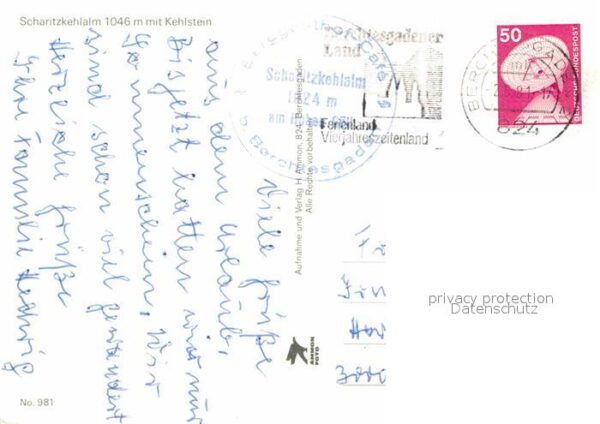 Scharitzkehlalm 1046 m mit Kehlstein
Viele Grüße
aus dem Urlaub.
Bis jetzt hatten wir nur
Sonnenschein. Wir
sind schon viel gewandert
Herzliche Grüße
Ihre Familie
No. 981
Aufnahme und Verlag H. Ammon, 824 Berchtesgaden
Alle Rechte vorbehalten
AMMON
FOTO
Scharitzkehlalm
1024 m
b. Berchtesgaden
Berchtesgadener
Land
Ferienland
Vierjahreszeitenland
BERCHTESGADEN
824
50
DEUTSCHE BUNDESPOST
privacy protection
Datenschutz